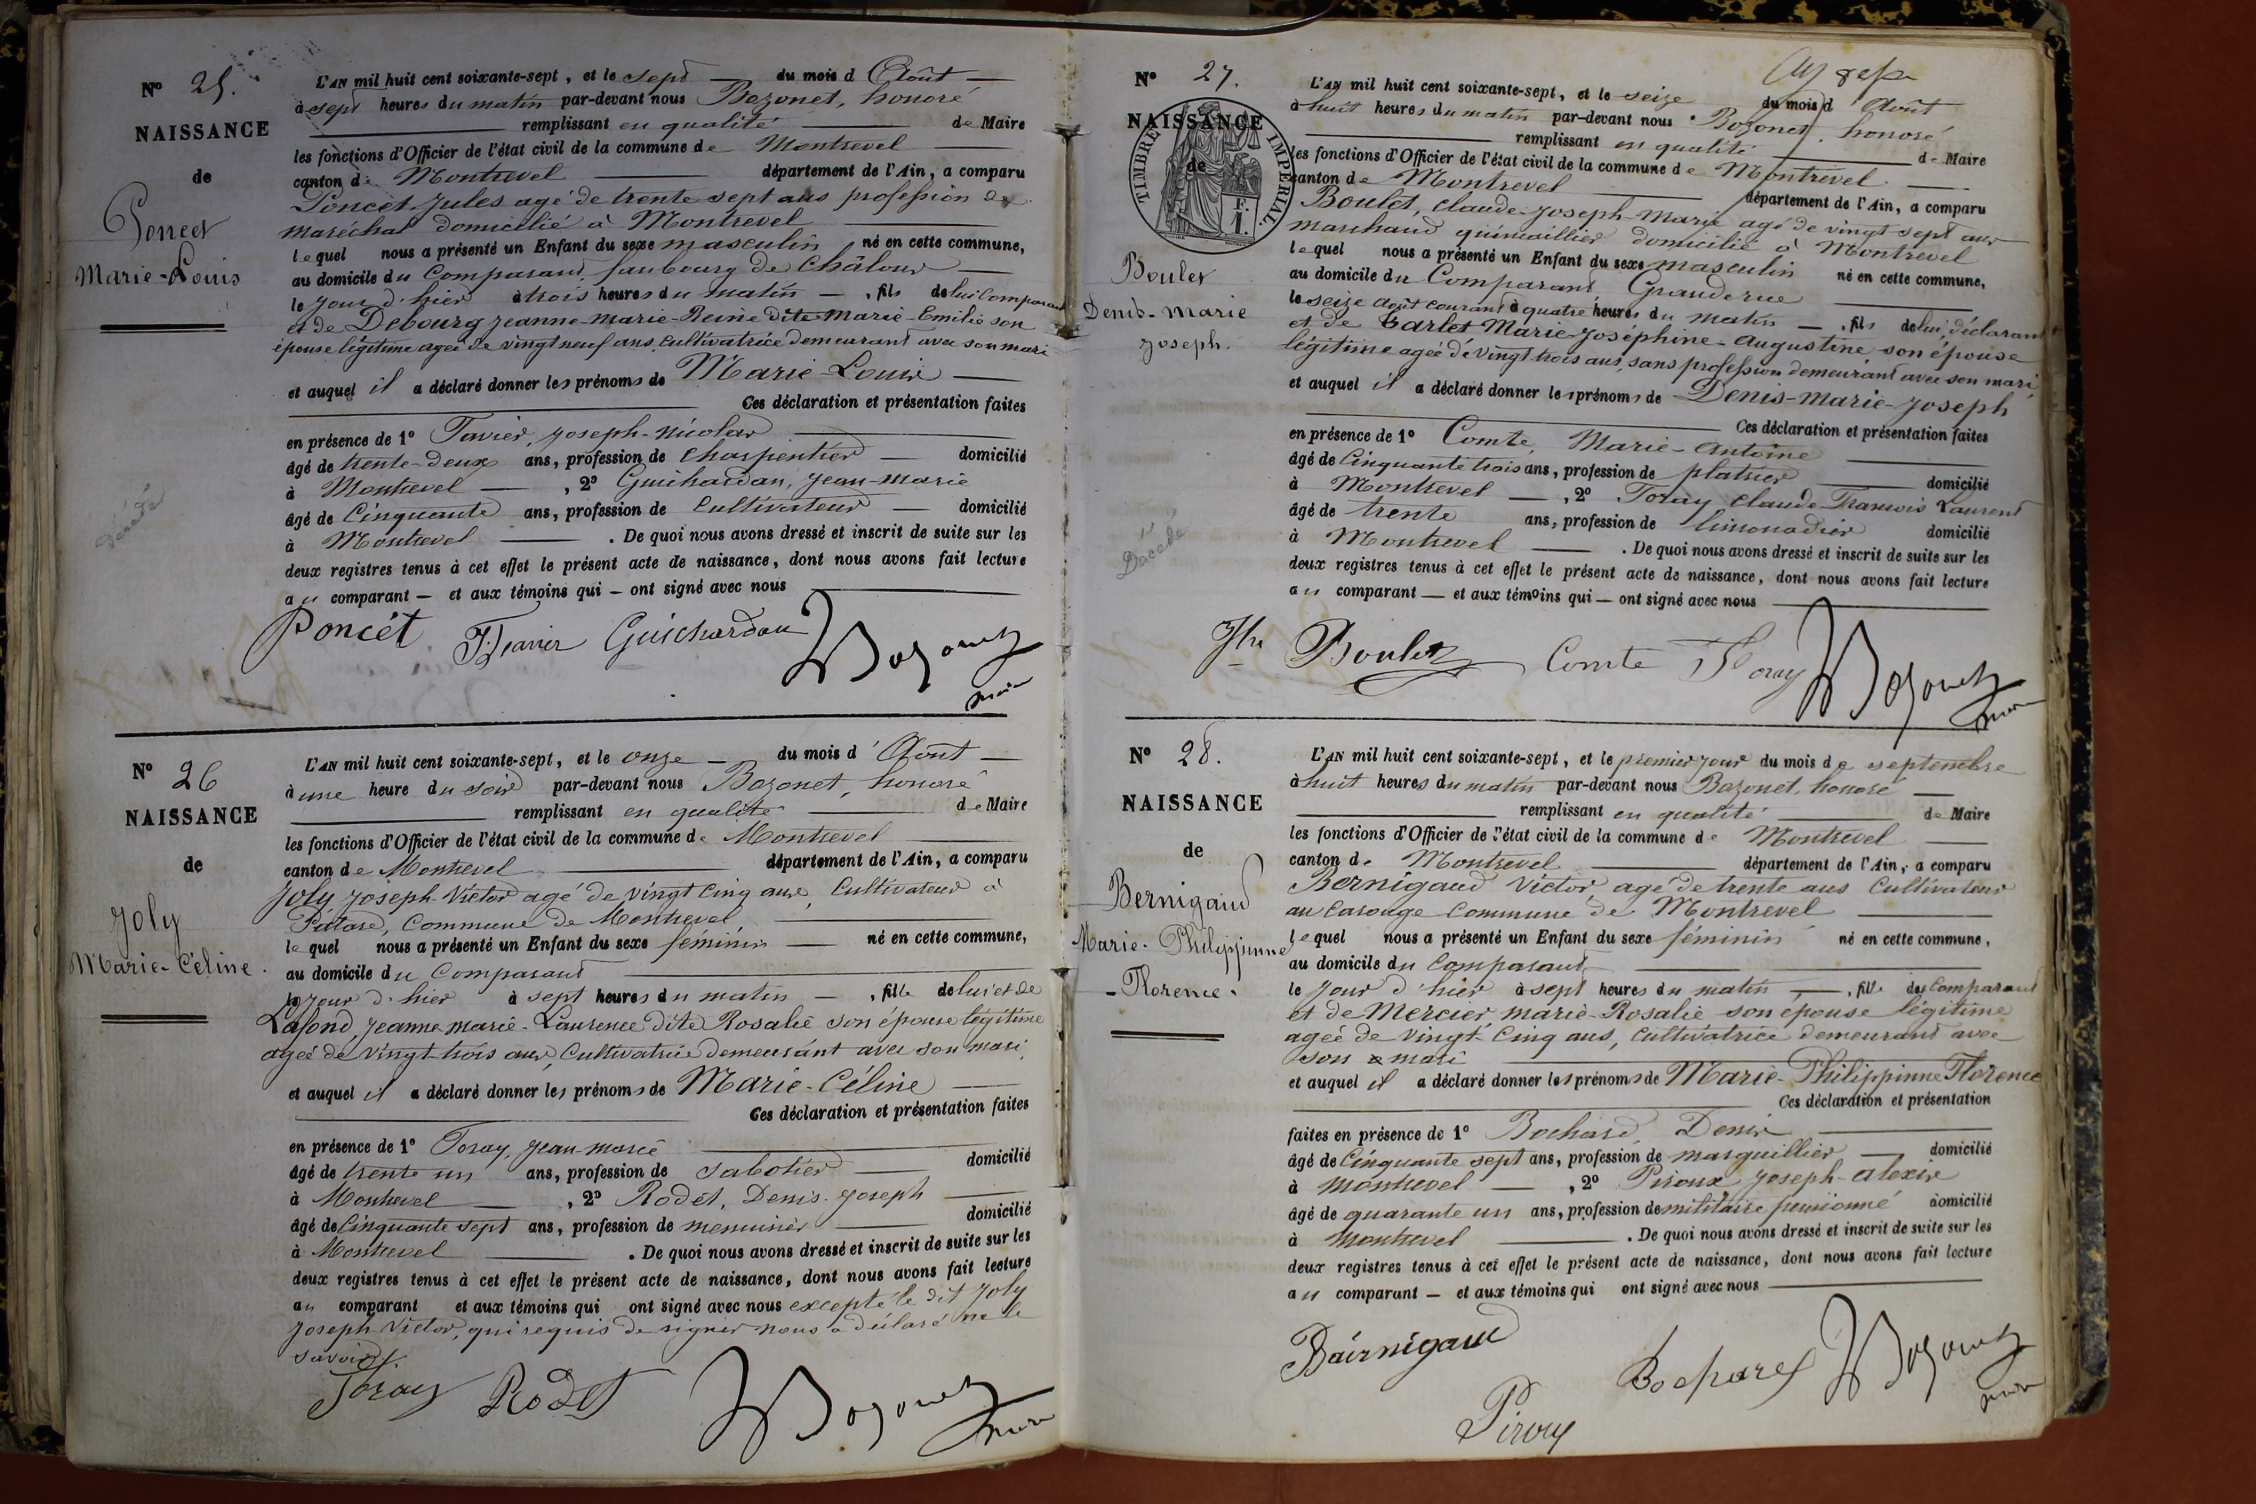 N° 25.
NAISSANCE
de
Poncet
Marie-Louis
L'AN mil huit cent soixante-sept, et le sept du mois d'Août
à sept heures du matin par-devant nous Bozonet, honoré
remplissant en qualité de Maire
les fonctions d'Officier de l'état civil de la commune de Montrevel
canton de Montrevel département de l'Ain, a comparu
Poncet Jules agé de trente sept ans profession de
maréchal domicilié à Montrevel
lequel nous a présenté un Enfant du sexe masculin né en cette commune,
au domicile du Comparant, faubourg de Châlour
le jour d'hier à trois heures du matin , fils de lui Comparant
et de Debourg Jeanne-Marie-Reine dite Marie-Emilie son
épouse légitime agée de vingt neuf ans, Cultivatrice demeurant avec son mari
et auquel il a déclaré donner les prénoms de Marie-Louis
Ces déclaration et présentation faites
en présence de 1° Tavier, Joseph-Nicolas
âgé de trente-deux ans, profession de Charpentier domicilié
à Montrevel , 2° Guichardan, Jean-Marie
âgé de Cinquante ans, profession de Cultivateur domicilié
à Montrevel . De quoi nous avons dressé et inscrit de suite sur les
deux registres tenus à cet effet le présent acte de naissance, dont nous avons fait lecture
au comparant — et aux témoins qui — ont signé avec nous
décédé
Poncet Tavier Guichardan Bozonet
maire
N° 26
NAISSANCE
de
Joly
Marie-Céline.
L'AN mil huit cent soixante-sept, et le onze du mois d'Août
à une heure du soir par-devant nous Bozonet, honoré
remplissant en qualité de Maire
les fonctions d'Officier de l'état civil de la commune de Montrevel
canton de Montrevel département de l'Ain, a comparu
Joly Joseph-Victor agé de vingt cinq ans, Cultivateur à
Commune de Montrevel
lequel nous a présenté un Enfant du sexe féminin né en cette commune,
au domicile du Comparant
le jour d'hier à sept heures du matin , fille de lui et de
Lafond, Jeanne marie-Laurence dite Rosalie son épouse légitime
agée de vingt trois ans, Cultivatrice demeurant avec son mari,
et auquel il a déclaré donner les prénoms de Marie-Céline
Ces déclaration et présentation faites
en présence de 1° Toray, Jean marie
âgé de trente un ans, profession de sabotier domicilié
à Montrevel , 2° Rodet, Denis-Joseph
âgé de Cinquante sept ans, profession de menuisier domicilié
à Montrevel . De quoi nous avons dressé et inscrit de suite sur les
deux registres tenus à cet effet le présent acte de naissance, dont nous avons fait lecture
au comparant et aux témoins qui ont signé avec nous excepté le dit Joly
Joseph Victor, qui requis de signer nous a déclaré ne le
savoir.
Toray Rodet Bozonet
maire
N° 27.
NAISSANCE
de
TIMBRE IMPERIAL
F.
1.
Boulet
Denis-Marie
Joseph.
L'AN mil huit cent soixante-sept, et le seize du mois d'Août
à huit heures du matin par-devant nous Bozonet, honoré
remplissant en qualité de Maire
les fonctions d'Officier de l'état civil de la commune de Montrevel
canton de Montrevel département de l'Ain, a comparu
Boulet, Claude-Joseph-Marie agé de vingt sept ans
marchand quincaillier domicilié à Montrevel
lequel nous a présenté un Enfant du sexe masculin né en cette commune,
au domicile du Comparant Grande rue
le seize août courant à quatre heures du matin — , fils de lui, déclarant
et de Barlet Marie-Joséphine-Augustine, son épouse
légitime agée de vingt trois ans, sans profession demeurant avec son mari,
et auquel il a déclaré donner les prénoms de Denis-Marie-Joseph
Ces déclaration et présentation faites
en présence de 1° Comte, Marie-Antoine
âgé de Cinquante trois ans, profession de platrier domicilié
à Montrevel — , 2° Toray Claude François Laurent
âgé de trente ans, profession de limonadier domicilié
à Montrevel . De quoi nous avons dressé et inscrit de suite sur les
deux registres tenus à cet effet le présent acte de naissance, dont nous avons fait lecture
au comparant — et aux témoins qui — ont signé avec nous
Décédé
Jh Boulet Comte Toray Bozonet
maire
N° 28.
NAISSANCE
de
Bernigaud
Marie-Philippinne
-Florence.
L'AN mil huit cent soixante-sept, et le premier jour du mois de septembre
à huit heures du matin par-devant nous Bozonet, honoré
remplissant en qualité de Maire
les fonctions d'Officier de l'état civil de la commune de Montrevel
canton de Montrevel département de l'Ain, a comparu
Bernigaud Victor, agé de trente ans Cultivateur
au Carouge Commune de Montrevel
lequel nous a présenté un Enfant du sexe féminin né en cette commune,
au domicile du Comparant
le jour d'hier à sept heures du matin — , fille du Comparant
et de Mercier Marie-Rosalie son épouse légitime
agée de vingt-cinq ans, Cultivatrice demeurant avec
son mari
et auquel il a déclaré donner les prénoms de Marie-Philippinne Florence
Ces déclaration et présentation
faites en présence de 1° Bochard, Denis
âgé de Cinquante sept ans, profession de marguillier domicilié
à Montrevel — , 2° Piroux Joseph-Alexis
âgé de quarante un ans, profession de militaire pensionné domicilié
à Montrevel . De quoi nous avons dressé et inscrit de suite sur les
deux registres tenus à cet effet le présent acte de naissance, dont nous avons fait lecture
au comparant — et aux témoins qui ont signé avec nous
Bairnigaud Bochard Bozonet
maire
Piroux